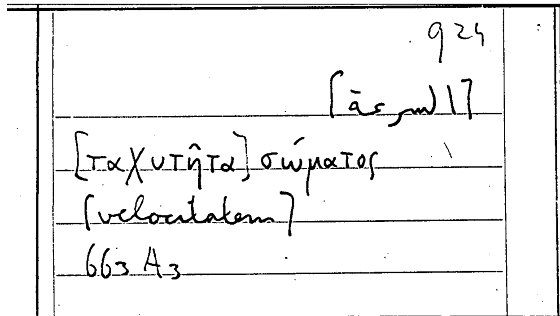 924
[ταχυτῆτα] σώματος
[velocitatem]
663 A3